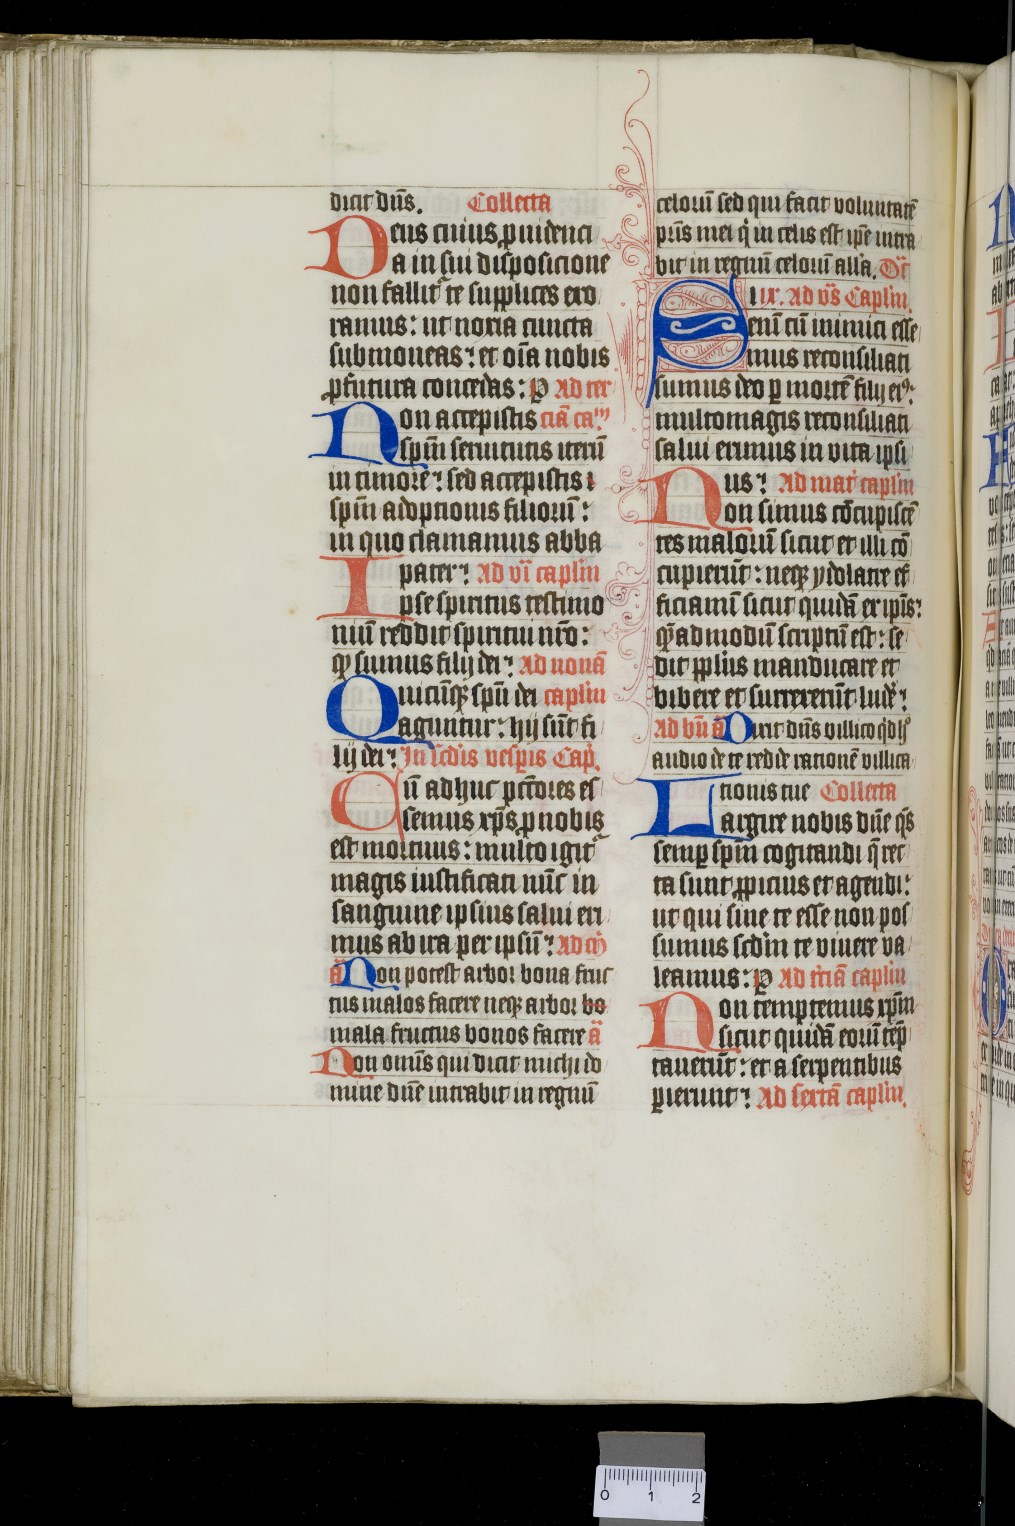 dicit dn̄s. Collecta
Deus cuius ꝓuidenci
a in sui disposicione
non fallit᷑ te supplices exo
ramus: ut noxia cuncta
submoueas: et oīa nobis
ꝓfutura concedas: P Ad ter
Non accepistis ciā caᵐ
sp̄m seruitutis iterū
in timore: sed accepistis
sp̄m adoptionis filiorū:
in quo clamamus abba
pater: Ad vī capl̄m
Ipse spiritus testimo
niū reddit spiritui nr̄o:
ꝙ sumus filij dei: Ad nonā
Quicūqꝫ sp̄u dei capl̄m
aguntur: hij sūt fi
lij dei: In sc̄dis vesꝑis Cap̄.
Cū adhuc pctōres es
semus xp̄s ꝓ nobis
est mortuus: multo igit᷑
magis iustificati nūc in
sanguine ipsius salui eri
mus ab ira per ipsū: Ad
a᷑ Non potest arbor bona fruc
tus malos facere neqꝫ arbor bo
mala fructus bonos facere a᷑
Non omīs qui dicit michi do
mine dn̄e intrabit in regnū
celorū sed qui facit voluntatē
pr̄is mei q̇ in celis est ip̄e intra
bit in regnū celorū all'a. Dc̄
ix. Ad vs̄ Caplm̄.
Fenī cū inimici esse
mus reconsiliati
sumus deo ꝑ mortē filij eiꝰ:
multomagis reconsiliati
salui erimus in vita ipsi
us: Ad mat' caplm̄
Non simus cōcupiscē
tes malorū sicut et illi cō
cupierūt: neqꝫ ydolatre ef
ficiamī sicut quidā ex ipīs:
quēadmodū scriptū est: se
dit ppl̄us manducare et
bibere et surrexerūt lud'e:
Ad bn̄ a᷑ Dixit dn̄s villico qd h̊
audio de te redde rationē villica
tionis tue Collecta
Largire nobis dn̄e qs̄
semꝑ spm̄ cogitandi q̄ rec
ta sunt ꝓpicius et agendi:
ut qui sine te esse non pos
sumus scd̄m te viuere va
leamus: P Ad tr̄ciā caplm̄
Non temptemus xp̄m
sicut quidā eorū tēp
tauerūt: et a serpentibus
ꝑierunt: Ad sextā caplm̄.
0 1 2